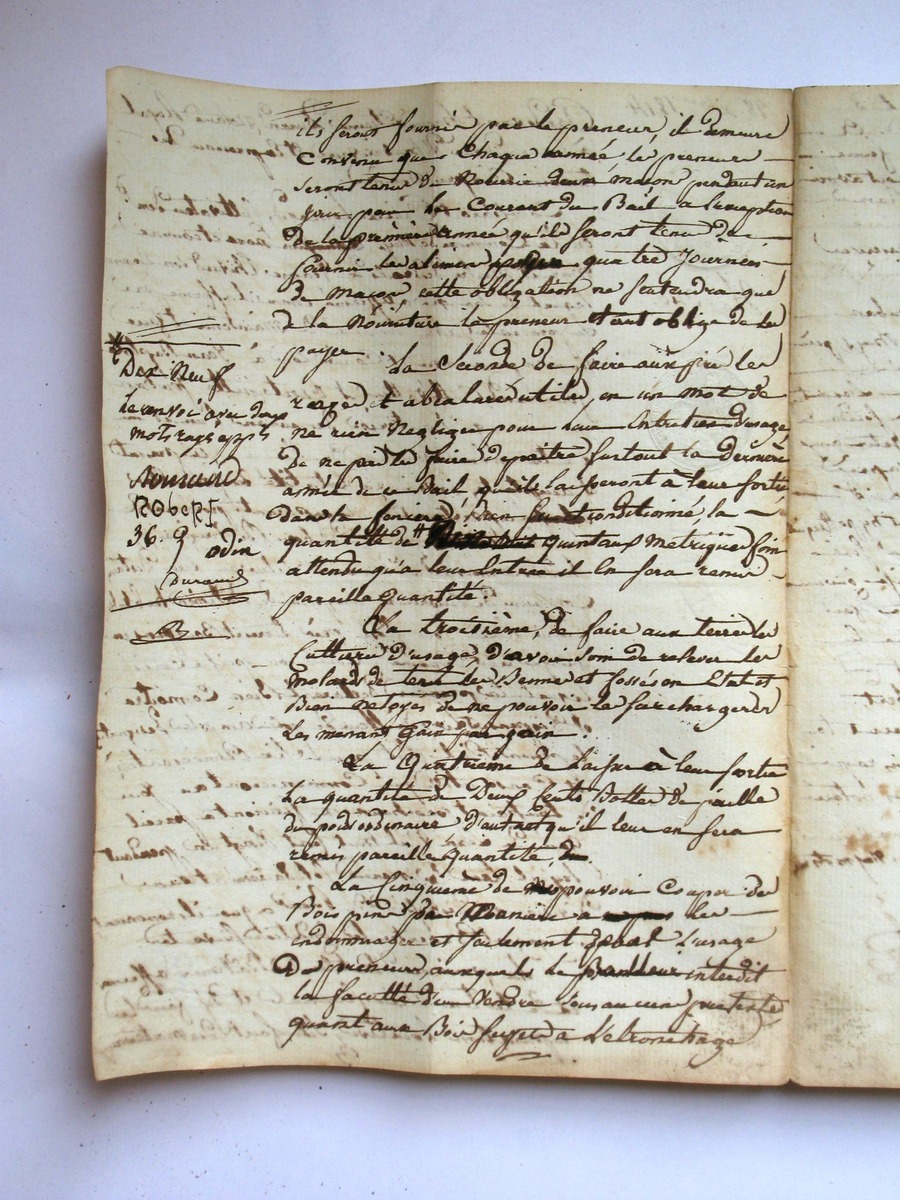 ils seront fournie par le preneur, il demeure
Convenu que Chaque année le preneur
seront tenu de Nourir deux macon pendant un
jour pour le Courant du Bail a l'exception
De la première année qu'ils seront tenu de
fournir les alimens quatre Journées
de macon cette obligation ne s'entendra que
de la Nouriture le preneur etant oblige de les
payer.
La Seconde de faire aux pré les
et utiles, en un mot de
ne rien Negliger pour leur Entretien d'usage
De ne pas le faire depaitre surtout la Dernière
année de ce Bail qu'ils laisseront à leur sortie
dans la Bien conditionné la
quantité de # quintaux metrique foin
attendu qu'a leur Entrée il en sera remis
pareille quantité.
La troisième, de faire aux terre les
Cultures d'usage d'avoir soin de relever les
molards de tenir les Bennes et fossés en Etat et
Bien netoyes de ne pouvoir les surcharger
Les menant Gain par gain.
La Quatrieme de Laisser à leur sortie
La quantité de Deux Cents Bottes de paille
du poids ordinaire, d'autant qu'il leur en sera
remis pareille quantité,
La Cinquième de ne pouvoir Couper de
Bois pins par Maniere a les
endommager et seulement pour L'usage
De preneur, auxquels le Bailleur interdit
la faculté d'en Vendre sous aucun pretexte
quant aux Bois sujets a L'etronchage
#
Dix Neuf
Le renvoi avec deux
mots rayés app
Armand
RObert
36. 9 odin
Durand
B